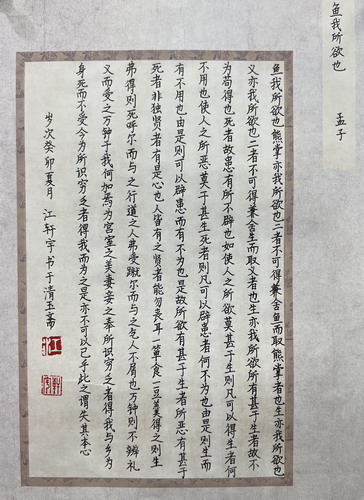 鱼我所欲也
孟子
鱼我所欲也熊掌亦我所欲也二者不可得兼舍鱼而取熊掌者也生亦我所欲也
义亦我所欲也二者不可得兼舍生而取义者也生亦我所欲所欲有甚于生者故不
为苟得也死者故患有所不辟也如使人之所欲莫甚于生则凡可以得生者何
不用也使人之所恶莫于甚生死者则凡可以辟患者何不为也由是则生而
有不用也由是则可以辟患而有不为也是故所欲有甚于生者所恶有甚于
死者非独贤者有是心也人皆有之贤者能勿丧耳一箪食一豆羹得之则生
弗得则死呼尔而与之行道之人弗受蹴尔而与之乞人不屑也万钟则不辨礼
义而受之万钟于我何加焉为宫室之美妻妾之奉所识穷乏者得我与乡为
身死而不受今为所识穷乏者得我而为之是亦不可以已乎此之谓失其本心
岁次癸卯夏月江轩宇书于清玉斋